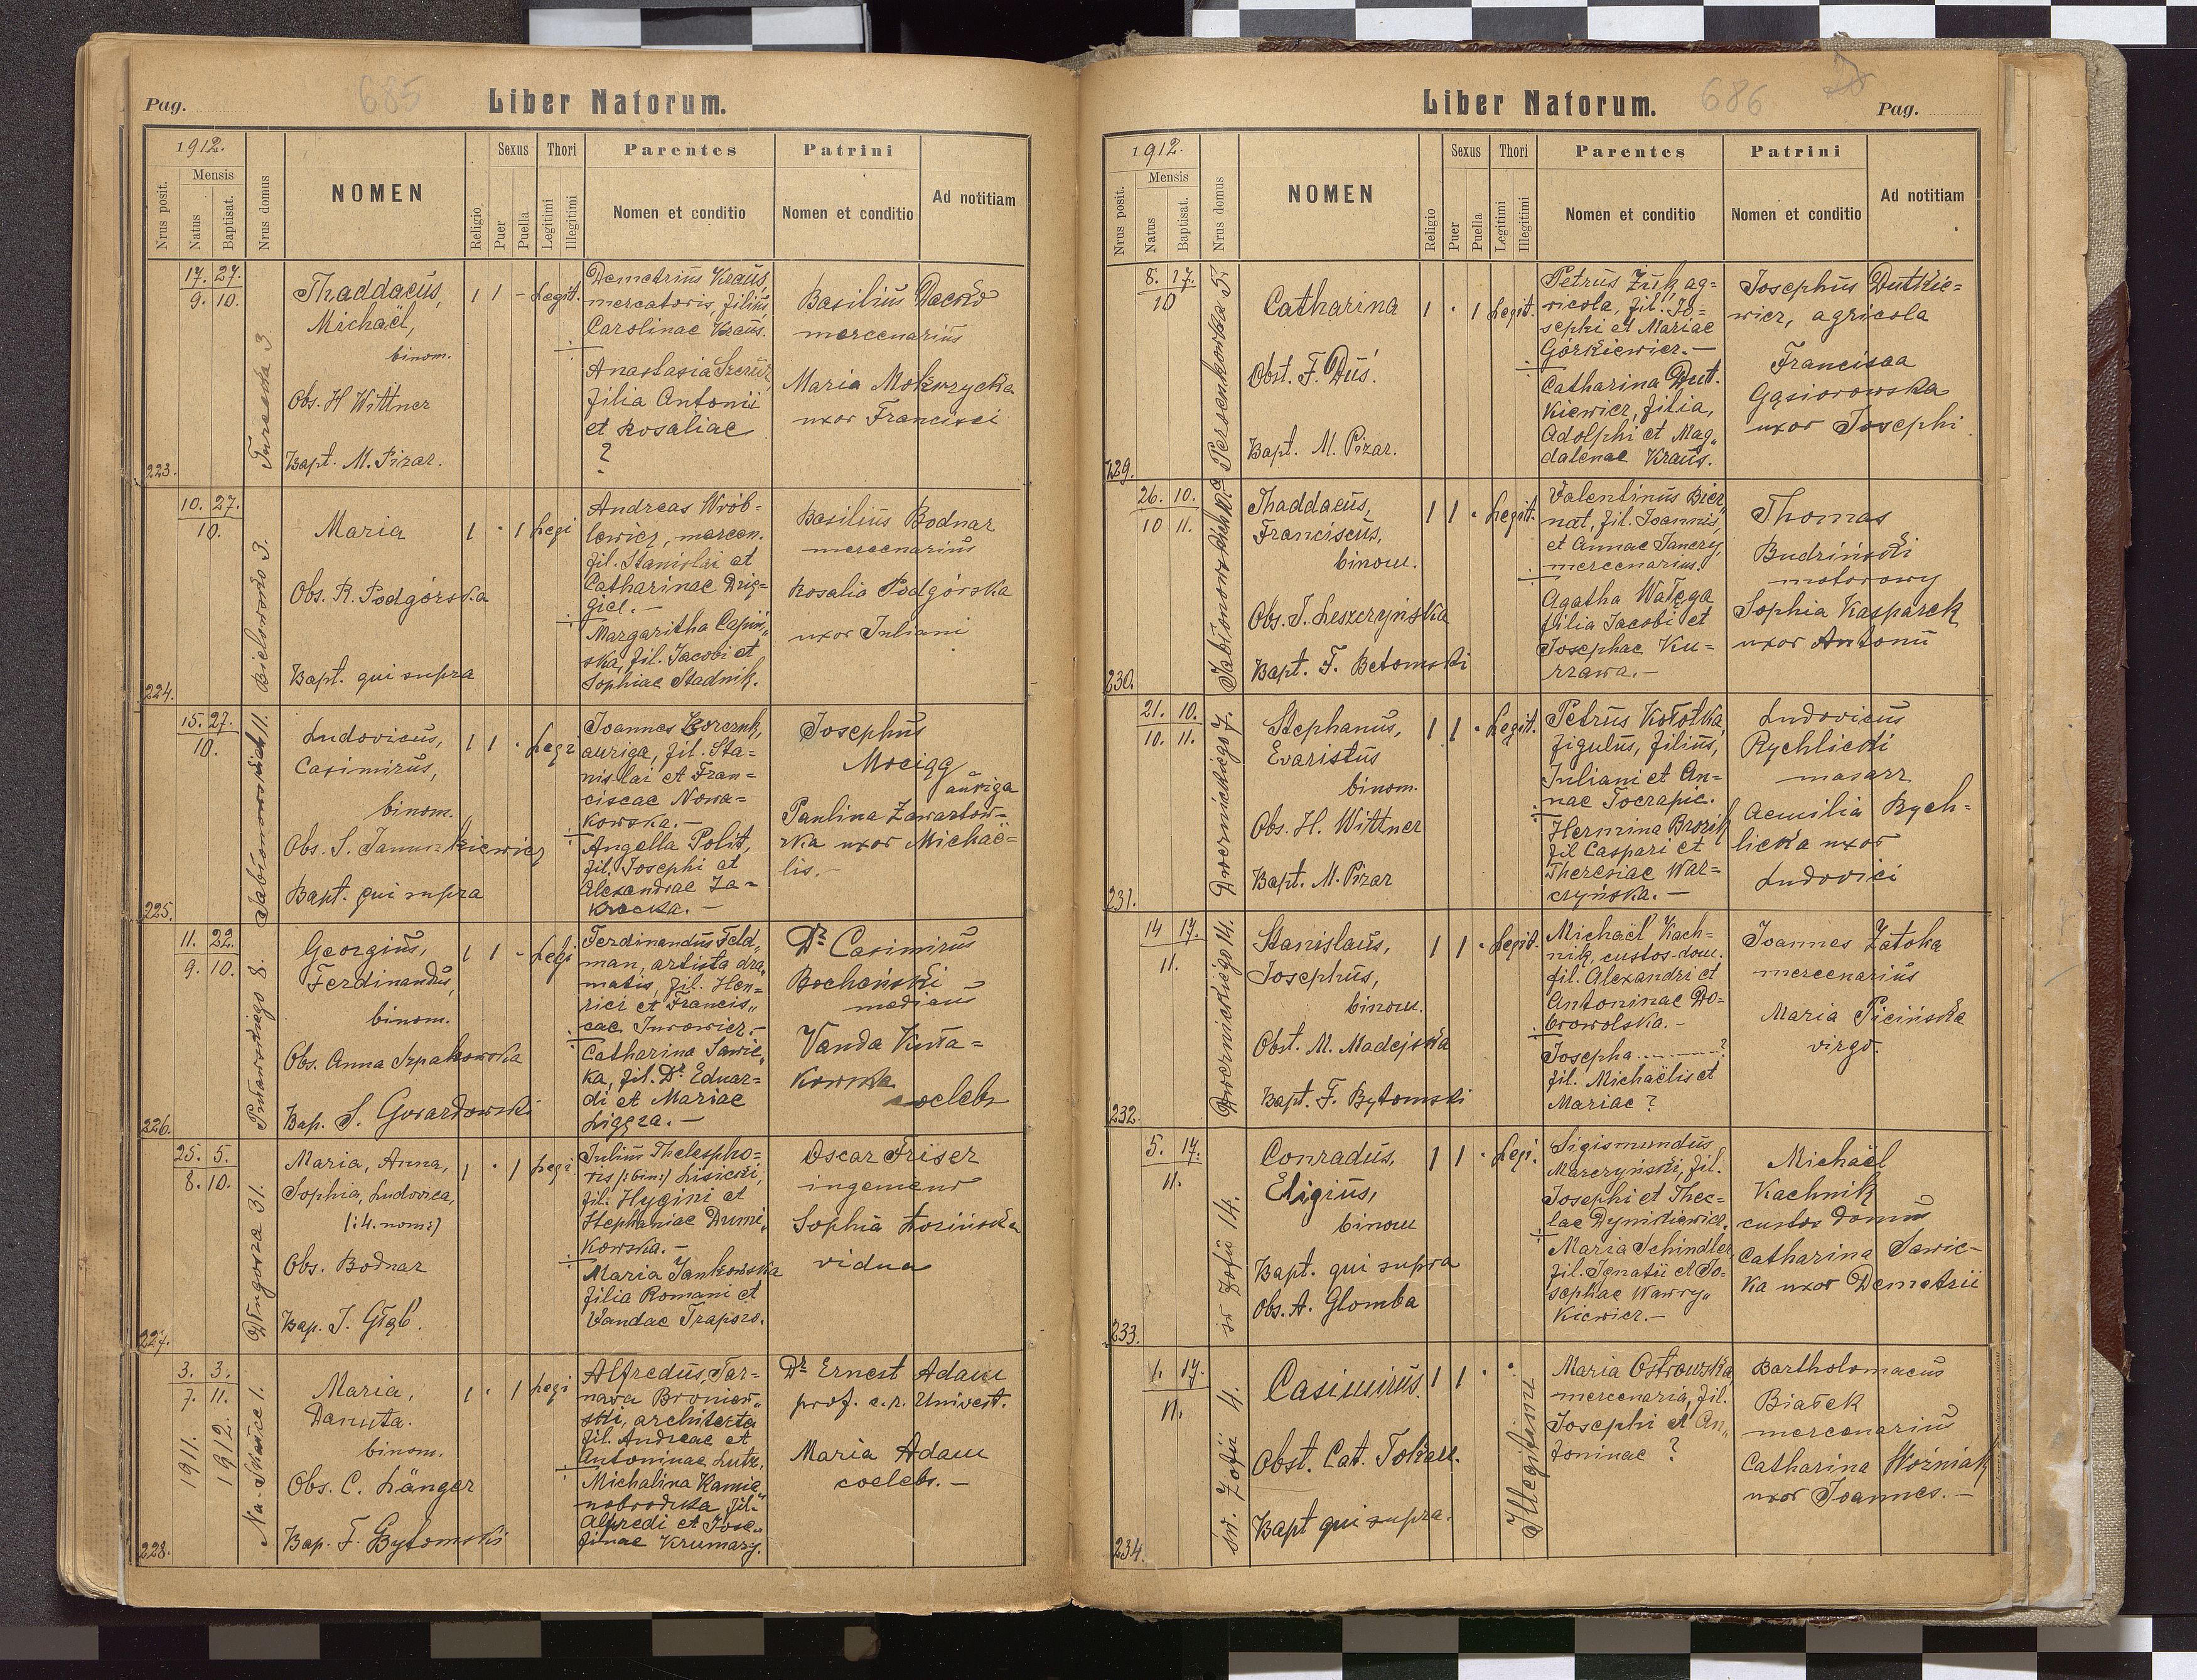 Pag.
685
Liber Natorum.
1912.
Nrus posit.
Mensis
Natus
Baptisat.
Nrus domus
NOMEN
Religio
Sexus
Puer
Puella
Thori
Legitimi
Illegitimi
Parentes
Nomen et conditio
Patrini
Nomen et conditio
Ad notitiam
223.
17. 27.
9. 10.
Thaddaeus,
Michaël,
binom.
Obs. H Wittner
Bapt. M. Pizar.
1 1 - Legit.
Demetrius Kraus,
mercatoris, filius
Carolinae Kraus.
Anastasia
filia Antonii
et Rosaliae
?
Basilius
mercenarius
Maria Mokrzycka
uxor Francisci
224.
10. 27.
10.
3.
Maria
Obs. R. Podgórska
Bapt. qui supra
1 · 1 Legi
Andreas Wrób-
lewicz, mercen.
fil. Stanislai et
Catharinae Dzig=
giel. -
Margaritha
ska, fil. Jacobi et
Sophiae Stadnik.
Basilius Bodnar
mercenarius
Rosalia Podgórska
uxor Juliani
225.
15. 27.
10.
Jabłonowskich 11.
Ludovicus,
Casimirus,
binom.
Obs. S. Januszkiewicz
Bapt. qui supra
1 1 · Legi
Joannes
auriga, fil. Sta=
nislai et Fran=
ciscae Nowa=
kowska. -
Angella Polit,
fil. Josephi et
Alexandrae Za=
krocka. -
Josephus
auriga
Paulina
uxor Michaë=
lis. -
226.
11. 22.
9. 10.
8.
Georgius,
Ferdinandus,
binom.
Obs. Anna Szpakowska
Bap. S. Gwardowski
1 1 - Legi
Ferdinandus Feld=
man, artista dra=
matis, fil. Hen=
rici et Francis=
cae Jurowicz. -
Catharina Sawic=
ka, fil. Dr. Eduar=
di et Mariae
Liggza. -
Dr Casimirus
Bochański
medicus
Vanda Kuła=
kowska
coelebs
227.
25. 5.
8. 10.
Długosza 31.
Maria, Anna,
Sophia, Ludovica,
/:4. nom:/
Obs. Bodnar
Bap. J. Głąb.
1 · 1 Legi
Julius Thelespho=
ris /:bin:/ Lisicki,
fil. Hygini et
Stephaniae Dumi=
kowska. -
Maria Jankowska
filia Romani et
Vandae
Oscar Friser
ingenieur
Sophia Łosińska
vidua
228.
3. 3.
7. 11.
1911. 1912.
Na Skałce 1.
Maria,
Danuta.
binom.
Obs. C. Länger
Bap. F. Bytomski
1 · 1 Legi
Alfredus, Tar=
nawa Broniew=
ski, architecta
fil. Andreae et
Antoninae Lutz.
Michalina Kamie=
nobrodzka fil.
Alfredi et Jose=
finae
Dr Ernest Adam
prof. c.r. Univest.
Maria Adam
coelebs. -
Liber Natorum.
686
Pag.
1912.
Nrus posit.
Mensis
Natus
Baptisat.
Nrus domus
NOMEN
Religio
Sexus
Puer
Puella
Thori
Legitimi
Illegitimi
Parentes
Nomen et conditio
Patrini
Nomen et conditio
Ad notitiam
229.
8. 17.
10
Persenkowka 5.
Catharina
Obst. F. Duś.
Bapt. M. Pizar.
1 · 1 Legit.
Petrus Żuk, ag=
ricola, fil. Jo=
sephi et Mariae
Górkiewicz. -
Catharina Dut=
kiewicz, filia,
Adolphi et Mag=
dalenae Kraus.
Josephus Dutkie=
wicz, agricola
Francisca
Gąsiorowska
uxor Josephi
230.
26. 10.
10 11.
Jabłonowskich
Thaddaeus,
Franciscus,
binom.
Obs. J. Leszczyńska
Bapt. F. Betomski
1 1 · Legit.
Valentinus Bier
nat, fil. Joannis,
et Annae
mercenarius.
Agatha Wałęga
filia Jacobi et
Josephae Ku=
rzawa. -
Thomas
Budziński
motorowy
Sophia Kasparek
uxor Antonii
231.
21. 10.
10. 11.
Dwernickiego 7.
Stephanus,
Evaristus
binom.
Obs. H. Wittner
Bapt. M. Pizar
1 1 · Legit.
Petrus Kołotka,
figulus, filius,
Juliani et An=
nae
Hermina Brozik
fil Caspari et
Theresiae War=
czyńska. -
Ludovicus
Rychlicki
masarz
Aemilia Rych=
licka uxor
Ludovici
232.
14 17.
11.
Dwernickiego 14.
Stanislaus,
Josephus,
binom.
Obst. M. Madejska
Bapt. F. Bytomski
1 1 · Legit.
Michaël Kach=
nik, custos dom.
fil. Alexandri et
Antoninae Do=
browolska. -
Josepha ........?
fil. Michaëlis et
Mariae ?
Joannes Zatoka
mercenarius
Maria Picińska
virgo.
233.
5. 17.
11.
św Zofii 14.
Conradus,
Eligius,
binom
Bapt. qui supra
Obs. A. Glomba
1 1 · Legi.
Sigismundus
Marczyński, fil.
Josephi et Thec=
lae
Maria Schindler
fil. Ignatii et Jo=
sephae Wawry=
kiewicz. -
Michaël
Kachnik
custos domus
Catharina Sawic=
ka uxor Demetrii
234.
1. 17.
11.
św. Zofii 4.
Casimirus.
Obst. Cat. Tokarz.
Bapt qui supra.
1 1 · ·
Illegitimi
Maria Ostrowska
mercenaria, fil.
Josephi et An=
toninae ?
Bartholomaeus
Białek
mercenarius
Catharina Woźniak
uxor Joannes. -